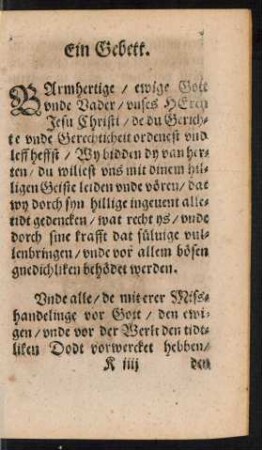 Ein Gebett.
BArmhertige / ewige Gott
vnde Vader / vnses HEren
Jesu Christi / de du Gerich-
te vnde Gerechticheit ordenest vnd
leff heffst / Wy bidden dy van her-
ten / du wiliest vns mit dinem hil-
ligen Geiste leiden vnde vören / dat
wy dorch syn hillige ingeuent alle-
tidt gedencken / wat recht ys / vnde
dorch sine krafft dat süluige vul-
lenbringen / vnde vor allem bösen
gnedichliken behödet werden.
Vnde alle / de mit erer Miss-
handelinge vor Gott / den ewi-
gen / vnde vor der Werlt den tidt-
liken Dodt vorwercket hebben /
K iiij den